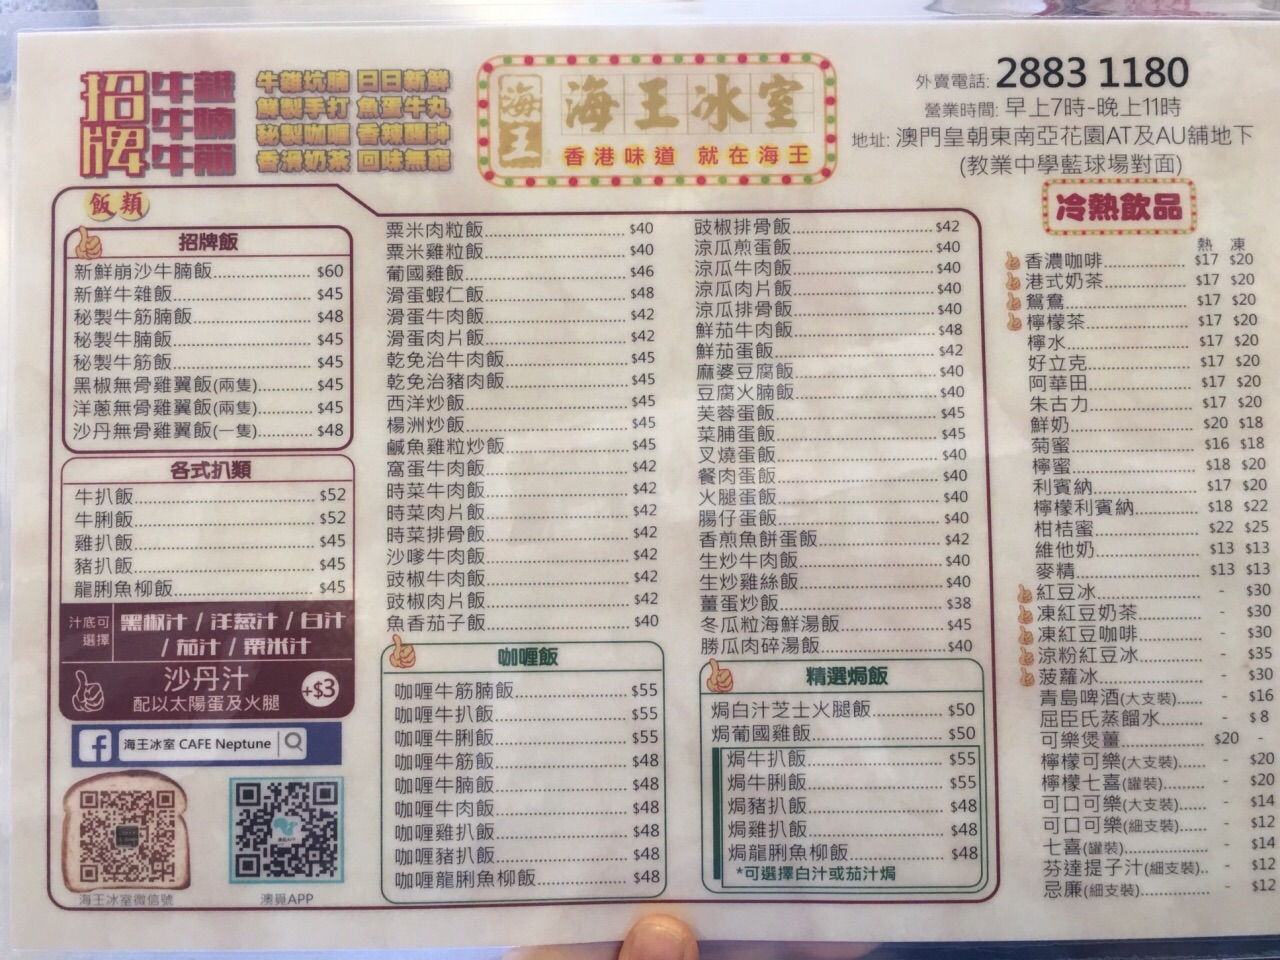 招牌
牛雜
牛腩
牛筋
牛雜坑腩 日日新鮮
鮮製手打 魚蛋牛丸
秘製咖喱 香辣醒神
香滑奶茶 回味無窮
海王
海王冰室
香港味道 就在海王
外賣電話: 2883 1180
營業時間: 早上7時-晚上11時
地址: 澳門皇朝東南亞花園AT及AU舖地下
(教業中學藍球場對面)
飯類
招牌飯
新鮮崩沙牛腩飯 $60
新鮮牛雜飯 $45
秘製牛筋腩飯 $48
秘製牛腩飯 $45
秘製牛筋飯 $45
黑椒無骨雞翼飯(兩隻) $45
洋蔥無骨雞翼飯(兩隻) $45
沙丹無骨雞翼飯(一隻) $48
各式扒類
牛扒飯 $52
牛脷飯 $52
雞扒飯 $45
豬扒飯 $45
龍脷魚柳飯 $45
汁底可選擇
黑椒汁 / 洋蔥汁 / 白汁
/ 茄汁 / 粟米汁
沙丹汁
配以太陽蛋及火腿
+$3
海王冰室 CAFE Neptune
海王冰室微信號
澳覓APP
粟米肉粒飯 $40
粟米雞粒飯 $40
葡國雞飯 $46
滑蛋蝦仁飯 $48
滑蛋牛肉飯 $42
滑蛋肉片飯 $42
乾免治牛肉飯 $45
乾免治豬肉飯 $45
西洋炒飯 $45
楊洲炒飯 $45
鹹魚雞粒炒飯 $45
窩蛋牛肉飯 $42
時菜牛肉飯 $42
時菜肉片飯 $42
時菜排骨飯 $42
沙嗲牛肉飯 $42
豉椒牛肉飯 $42
豉椒肉片飯 $42
魚香茄子飯 $40
咖喱飯
咖喱牛筋腩飯 $55
咖喱牛扒飯 $55
咖喱牛脷飯 $55
咖喱牛筋飯 $48
咖喱牛腩飯 $48
咖喱牛肉飯 $48
咖喱雞扒飯 $48
咖喱豬扒飯 $48
咖喱龍脷魚柳飯 $48
豉椒排骨飯 $42
涼瓜煎蛋飯 $40
涼瓜牛肉飯 $40
涼瓜肉片飯 $40
涼瓜排骨飯 $40
鮮茄牛肉飯 $48
鮮茄蛋飯 $42
麻婆豆腐飯 $40
豆腐火腩飯 $40
芙蓉蛋飯 $45
菜脯蛋飯 $45
叉燒蛋飯 $40
餐肉蛋飯 $40
火腿蛋飯 $40
腸仔蛋飯 $40
香煎魚餅蛋飯 $42
生炒牛肉飯 $40
生炒雞絲飯 $40
薑蛋炒飯 $38
冬瓜粒海鮮湯飯 $45
勝瓜肉碎湯飯 $40
精選焗飯
焗白汁芝士火腿飯 $50
焗葡國雞飯 $50
焗牛扒飯 $55
焗牛脷飯 $55
焗豬扒飯 $48
焗雞扒飯 $48
焗龍脷魚柳飯 $48
*可選擇白汁或茄汁焗
冷熱飲品
熱 凍
香濃咖啡 $17 $20
港式奶茶 $17 $20
鴛鴦 $17 $20
檸檬茶 $17 $20
檸水 $17 $20
好立克 $17 $20
阿華田 $17 $20
朱古力 $17 $20
鮮奶 $20 $18
菊蜜 $16 $18
檸蜜 $18 $20
利賓納 $17 $20
檸檬利賓納 $18 $22
柑桔蜜 $22 $25
維他奶 $13 $13
麥精 $13 $13
紅豆冰 - $30
凍紅豆奶茶 - $30
凍紅豆咖啡 - $30
涼粉紅豆冰 - $35
菠蘿冰 - $30
青島啤酒(大支裝) - $16
屈臣氏蒸餾水 - $ 8
可樂煲薑 $20 -
檸檬可樂(大支裝) - $20
檸檬七喜(罐裝) - $20
可口可樂(大支裝) - $14
可口可樂(細支裝) - $12
七喜(罐裝) - $14
芬達提子汁(細支裝) - $12
忌廉(細支裝) - $12